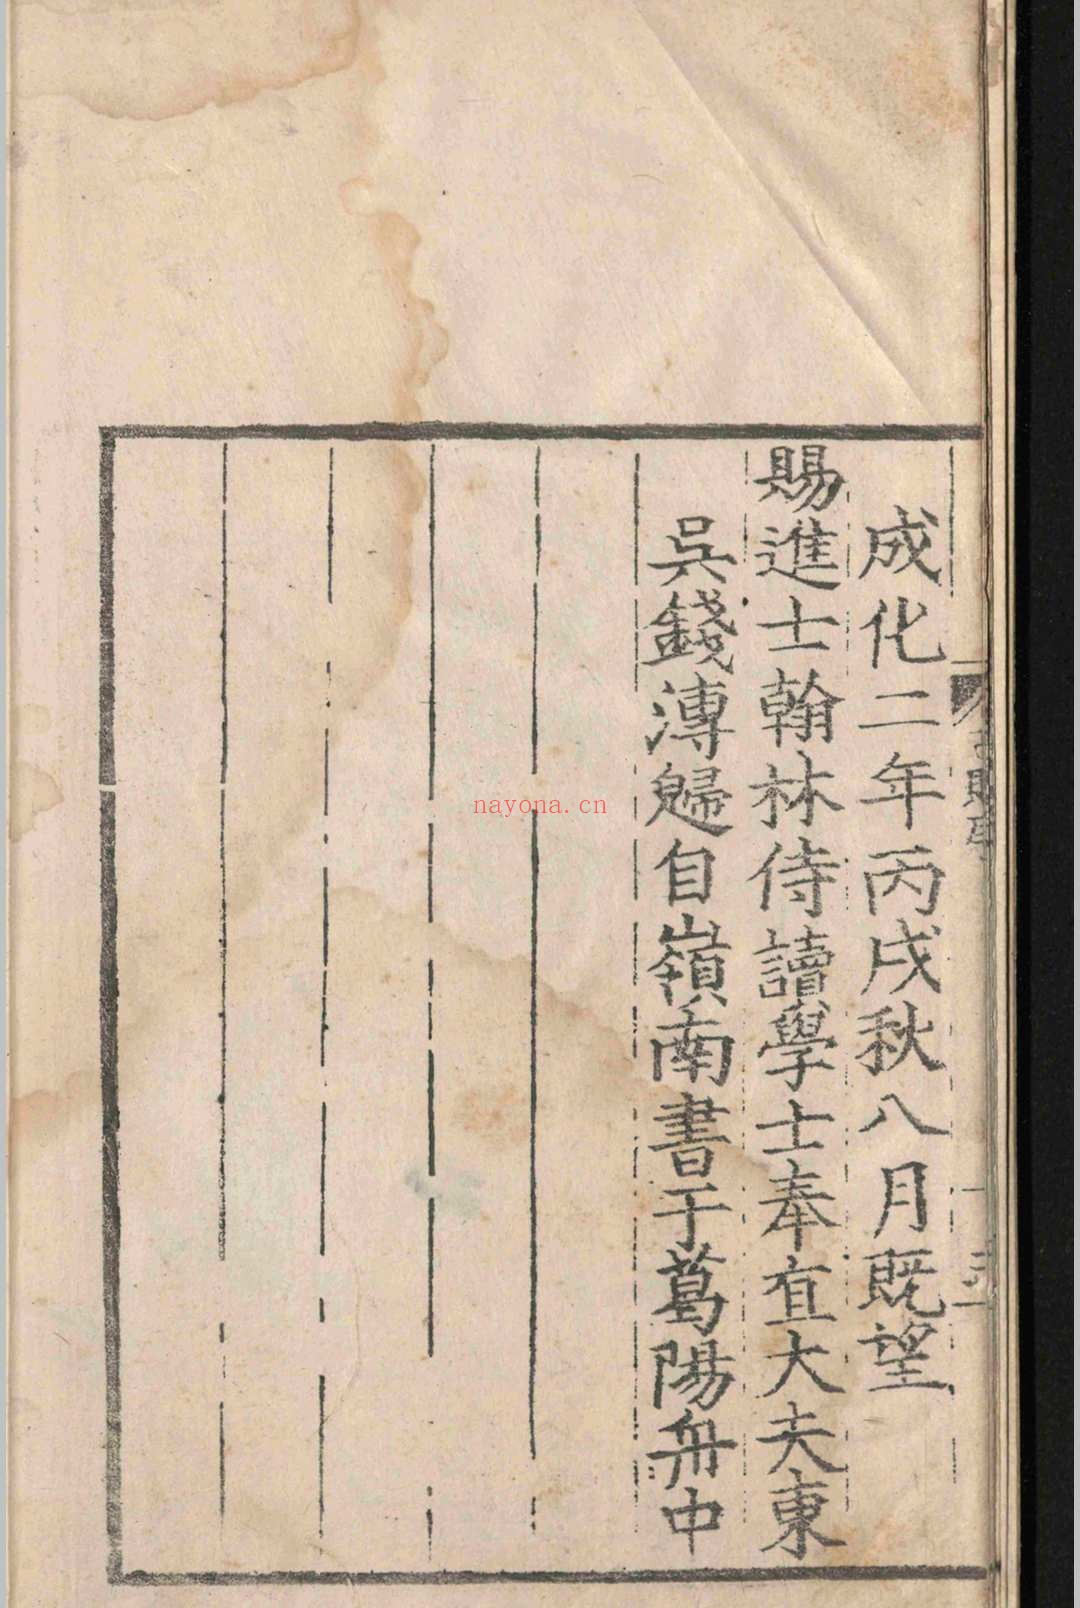 成化二年丙戌秋八月既望
賜進士翰林侍讀學士奉直大夫東
吳錢溥歸自嶺南書于葛陽舟中
nayona.cn